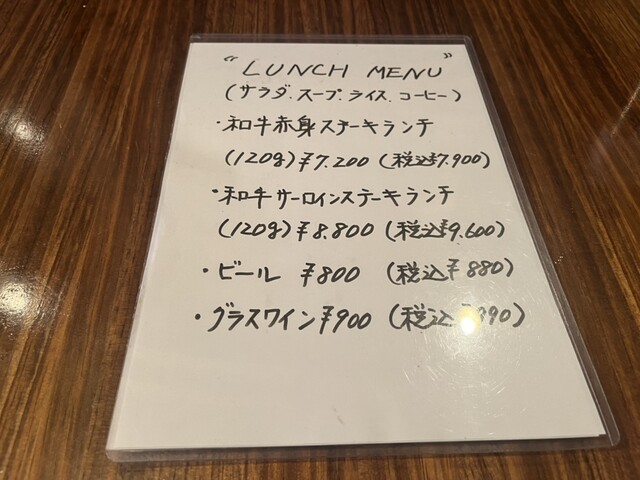 " LUNCH MENU "
(サラダ.スープ.ライス.コーヒー)
・和牛赤身ステーキランチ
(120g)¥7.200(税込¥7.900)
・和牛サーロインステーキランチ
(120g)¥8.800(税込¥9.600)
・ビール ¥800 (税込¥880)
・グラスワイン¥900 (税込¥990)